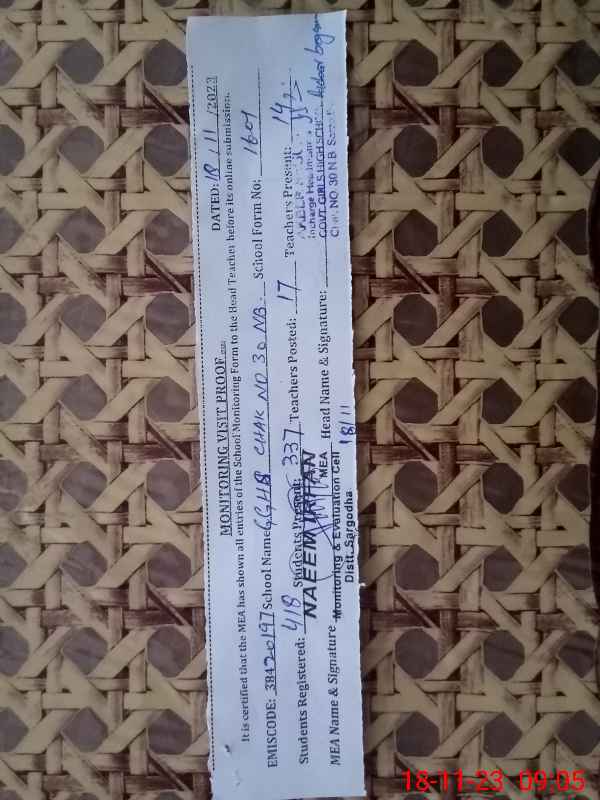 MONITORING VISIT PROOF
DATED: 18/11/2023
It is certified that the MEA has shown all entities of the School Monitoring Form to the Head Teacher before its online submission.
EMISCODE: 38420197 School Name GGHS CHAK NO 30 NB. School Form No: 1601
Students Registered: 418 Students Present: 337 Teachers Posted: 17 Teachers Present: 14
NAEEM IRFAN
MEA
MEA Name & Signature Monitoring & Evaluation Cell Head Name & Signature:
Distt. Sargodha
18/11
Incharge
GOVT. GIRLS HIGH SCHOOL
CHAK NO. 30 N.B
18-11-23 09:05